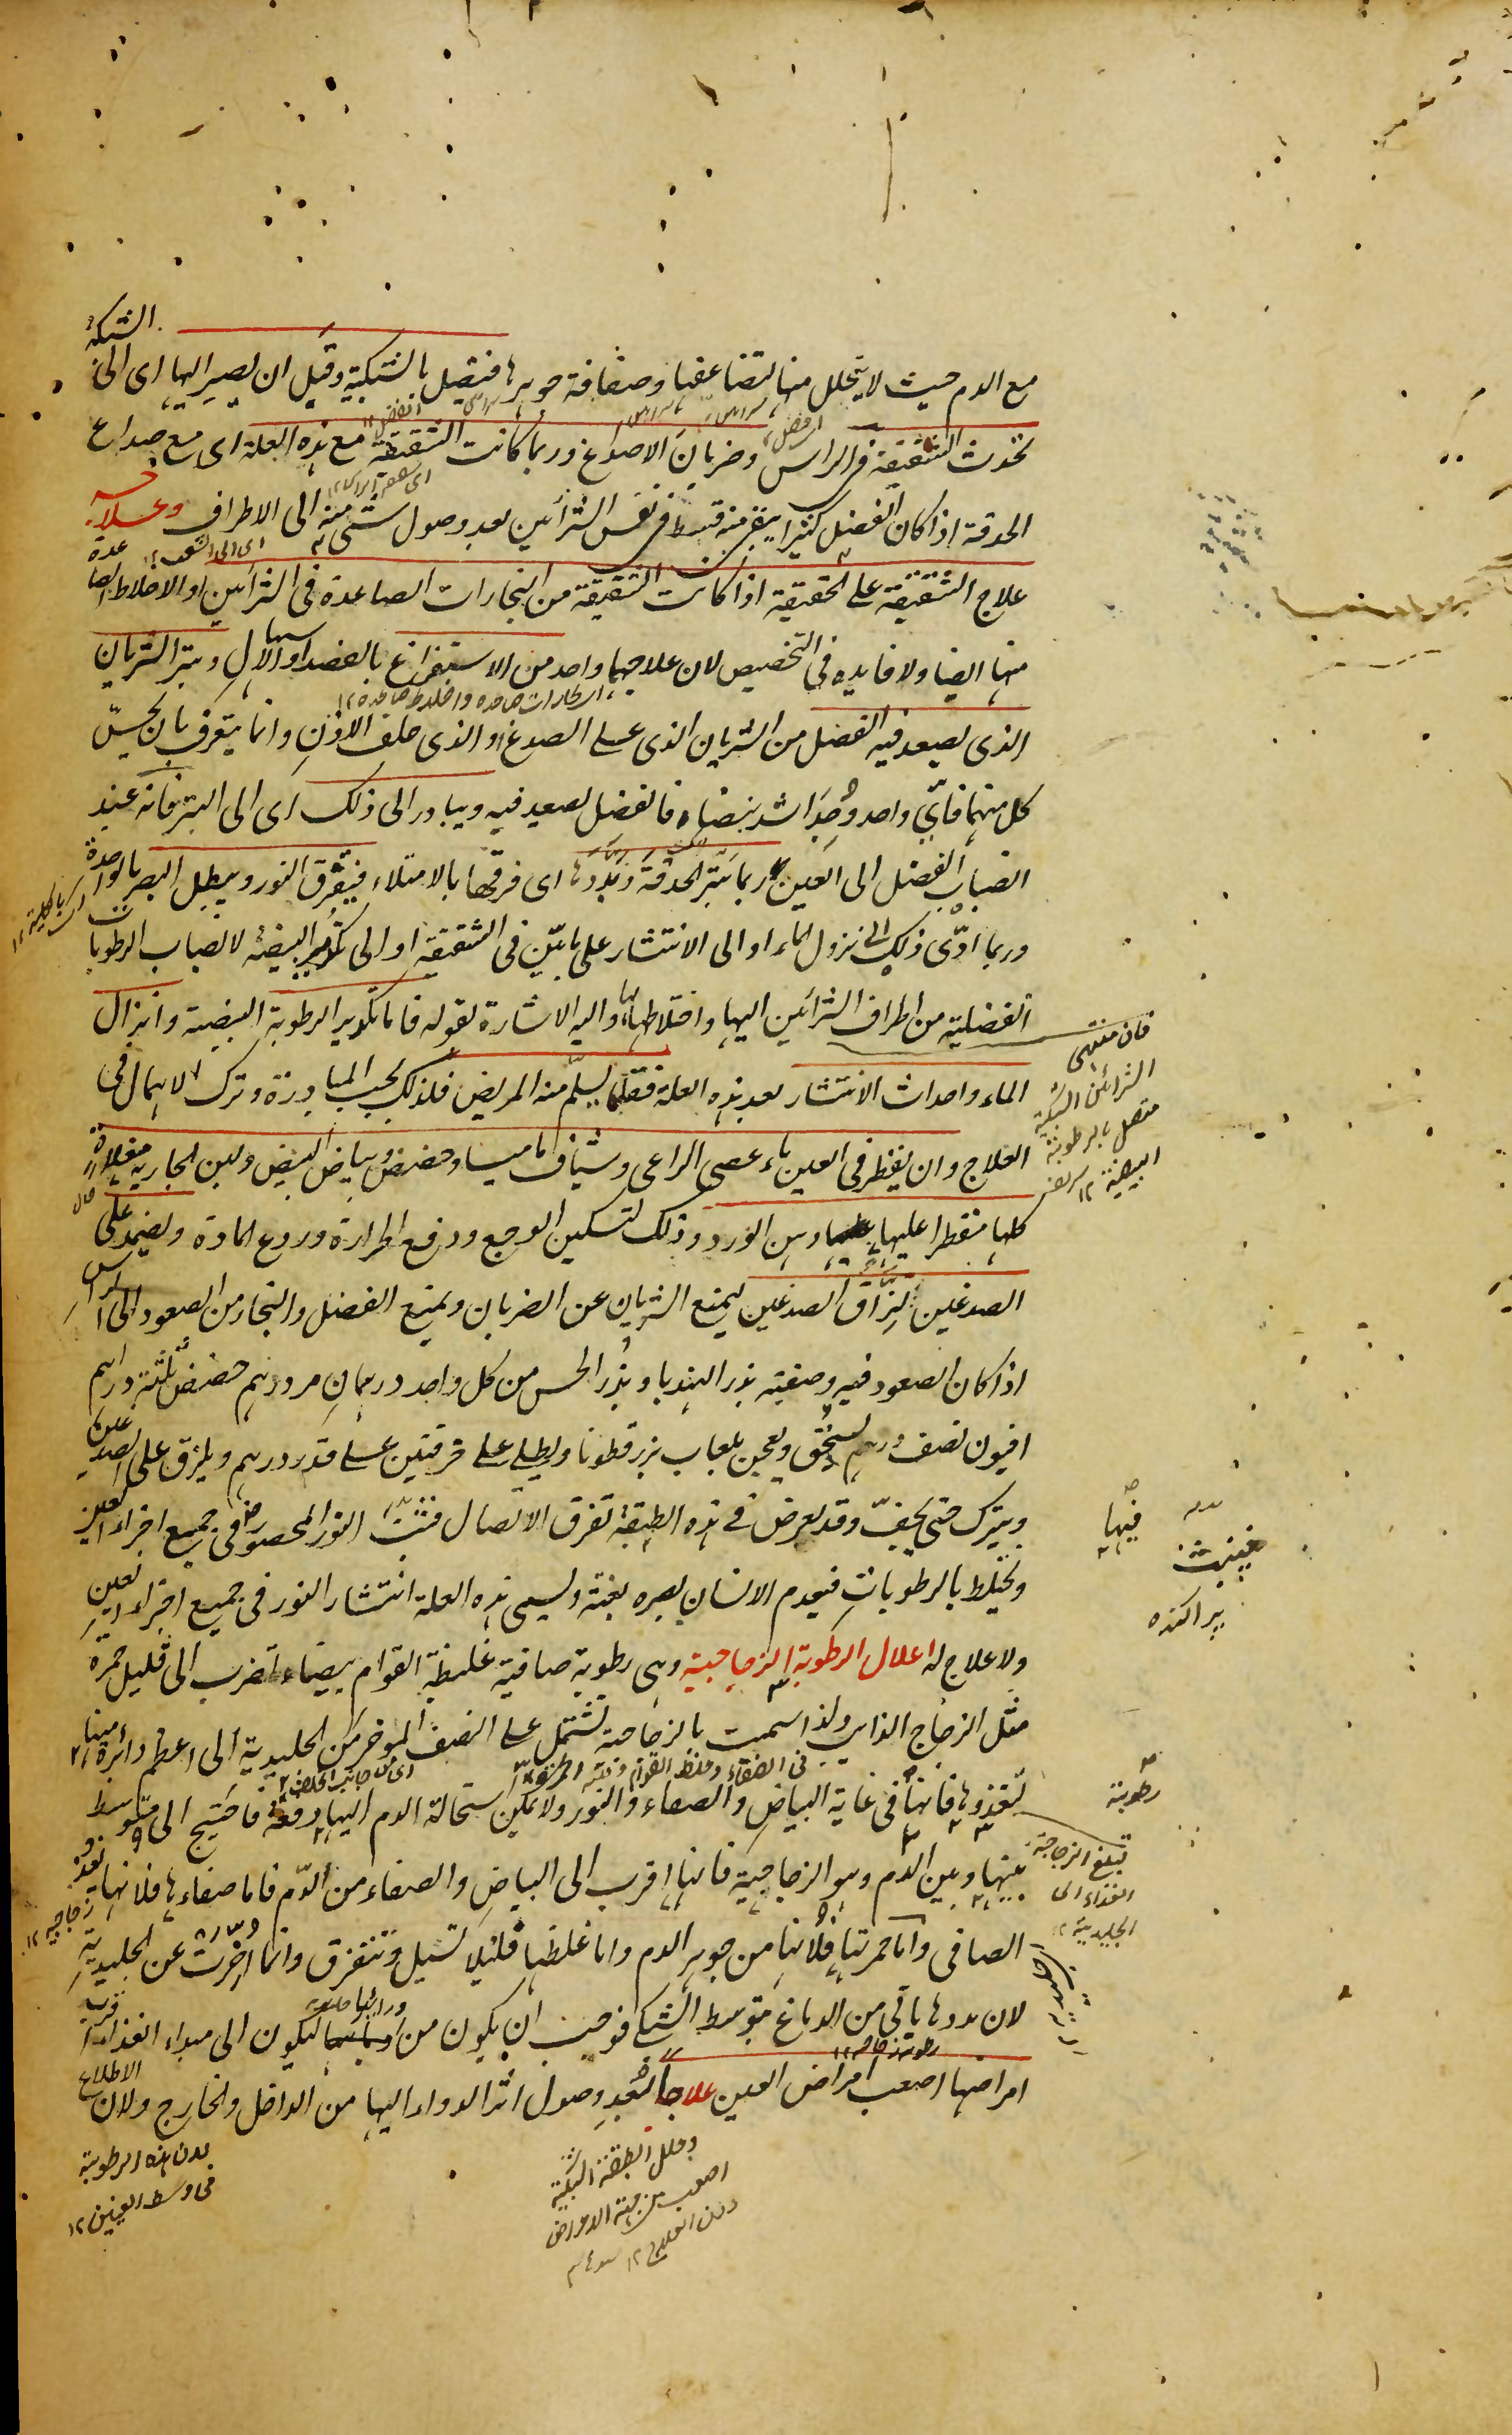 مع الدم حيث لا يتحلل منها لتضاعفها وصفاقة جوهرها فيتصل بالشبكية وقبل ان يصير اليها اى الى الشبكة
تحدث الشقيقة فى الراس وضربان الاصداغ وربما كانت الشقيقة مع هذه العلة اى مع صداع
الحدقة اذا كان الفضل كثيرا يبقى منه قسط فى نفس الشرائين بعد وصول شئ منه الى الاطراف وعلاجه
علاج الشقيقة على الحقيقة اذا كانت الشقيقة من البخارات الصاعدة فى الشرائين او الاخلاط الصاعدة
منها ايضا ولا فايده فى التخصيص لان علاجهما واحد من الاستفراغ بالفصد او الاسهال وبتر الشريان
الذى يصعد فيه الفضل من الشريان الذى على الصدغ او الذى خلف الاذن وانما يتعرف بان يحبسّ
كل منهما فاىّ واحد وُجِدَ اشد نبضا فالفضل يصعد فيه ويبادر الى ذلك اى الى البتر فانه عند
انصباب الفضل الى العين ربما بتّر الحدقة وبدّدها اى فرقها بالامتلاء فيتفرق النور ويبطل البصر بالواحدة
وربما ادّى ذلك الى نزول الماء او الى الانتشار على ما بيّن فى الشقيقة او الى تكدير البيضية لانصباب الرطوبات
الفضلية من اطراف الشرائين اليها واختلاطها بها واليه الاشارة بقوله فاما تكدير الرطوبة البيضية وانزال
الماء واحداث الانتشار بعد هذه العلة فقلما يسلم منه المريض فلذلك يجب المبادرة وترك الاهمال فى
العلاج وان يقطر فى العين ماء عصى الراعى وشياف ماميسا وحضض وبياض البيض ولبن الجارية مغلاة
كلها مقطرا عليها دهن الورد وذلك لتسكين الوجع ودفع الحرارة وردع المادة ويضمد على
الصدغين لزاق الصدغين ليمنع الشريان عن الضربان ويمنع الفضل والبخار من الصعود الى الراس
اذا كان الصعود فيه وصفته بذر الهندبا وبذر الخس من كل واحد درهمان مر درهم حضض ثلثة دراهم
افيون نصف درهم يسحق ويعجن بلعاب بزر قطونا ويطلى على خرقتين على قدر درهم ويلزق على الصدغين
ويترك حتى يجفّ وقد يعرض فى هذه الطبقة تفرق الاتصال فتشتت النور المحصور فى جميع اجزاء العين
ويختلط بالرطوبات فيعدم الانسان بصره بغتة وليسمى هذه العلة انتشار النور فى جميع اجزاء العين
ولا علاج له اعلال الرطوبة الزجاجية وهى رطوبة صافية غليظة القوام بيضاء تضرب الى قليل حمرة
مثل الزجاج الذائب ولذا سميت بالزجاجية تشتمل على النصف الموخر من الجليدية الى اعظم دائرة منها
تغذوها فانها فى غاية البياض والصفاء والنور ولا يمكن استحالة الدم اليها دفعة فاحتيج الى متوسط
بينها وبين الدم وهو الزجاجية فانها اقرب الى البياض والصفاء من الدّم فاما صفاءها فلانها تغذو
الصافى واما حمرتها فلانها من جوهر الدم واما غلظها فلئلا تسيل وتتفرق وانما اخرت عن الجليدية
لان مددها ياتى من الدماغ بتوسط الشبكى فوجب ان يكون من ورائها ليكون الى مبداء الغذاء اقرب
امراضها اصعب امراض العين علاجا لبُعد وصول اثر الدواء اليها من الداخل والخارج ولان الاطلاع
فان منتهى
الشرائين الشبكية
متصل بالرطوبة
البيضية ١٢
فيها
پراكنده
رطوبة
تبلغ الزجاجية
الغذاء الى
الجليدية ١٢
وعلل الطبقة الشبكية
اصعب من جهة الامراض
بدن هذه الرطوبة
فى وسط العينين ١٢